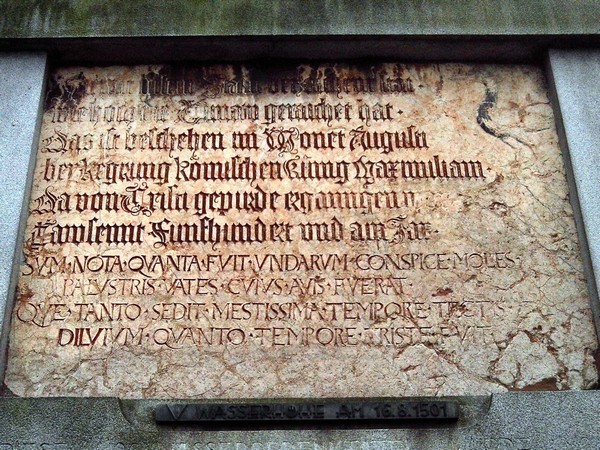 wie hoch die Tunaw geraichet hat·
Das ist beschehen im Monet Augusti
bey Regirung Römischen Künig Maximilian·
Da von Cristi gepurde ergangen
Tawsennt Funfhundert und ain Jar·
SVM·NOTA·QVANTA·FVIT·VNDARVM·CONSPICE·MOLES·
PALVSTRIS·VATES·CVIVS·AVIS·FVERAT·
QVE·TANTO·SEDIT·MESTISSIMA·TEMPORE·TECTIS
DILVVIVM·QVANTO·TEMPORE·TRISTE·FVIT
WASSERHÖHE AM 16.8.1501